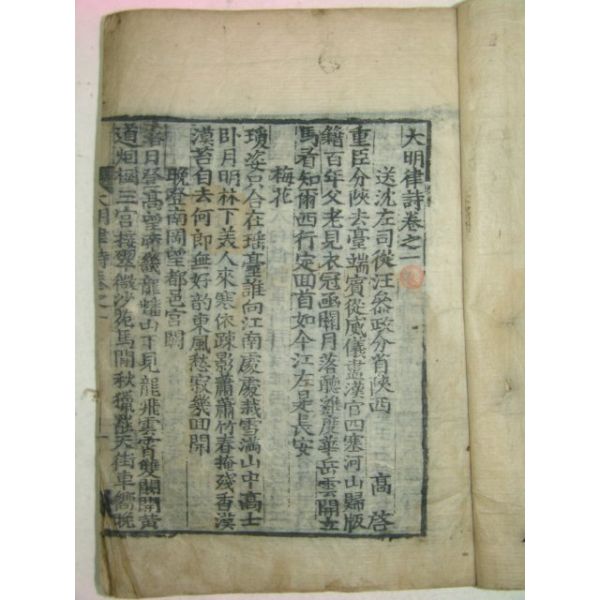 大明律詩卷之一
送沈左司從汪參政分省陝西 高啓
重臣分陝去臺端賓從威儀盡漢官四塞河山歸版
籍百年父老見衣冠函關月落聽雞度華岳雲開立
馬看知爾西行定回首如今江左是長安
梅花
瓊姿只合在瑤臺誰向江南處處栽雪滿山中高士
卧月明林下美人來寒依疎影蕭蕭竹春掩殘香漠
漠苔自去何郎無好韵東風愁寂幾回開
晚登南岡望都邑宮闕
落日登高望帝畿龍蟠山下見龍飛雲霄雙闕開黃
道烟樹三宮接翠微沙苑馬閒秋獵罷天街車響晚
大明律詩卷之一